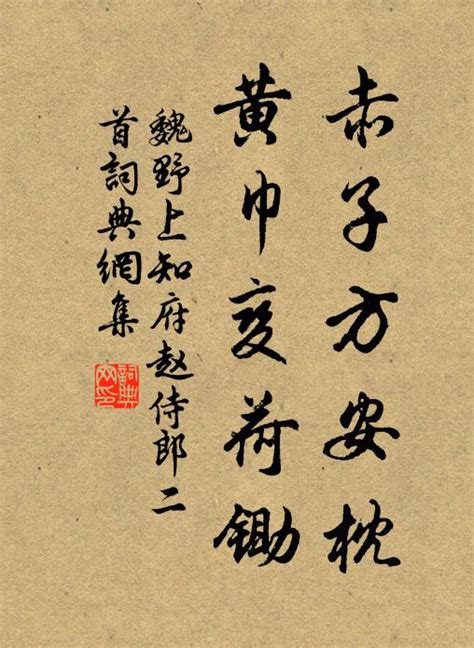 赤子方安枕
黄巾变荷鋤
魏野上知府赵侍郎二
首詞典網集
詞典
网印